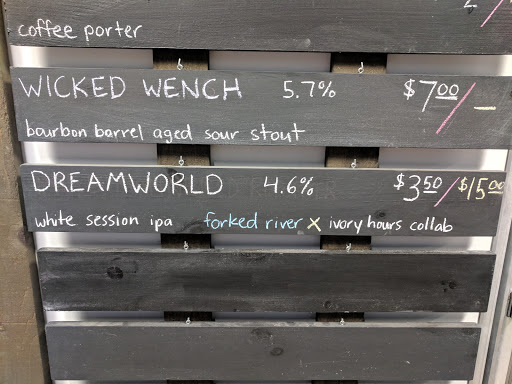 2/
coffee porter
WICKED WENCH 5.7% $7.00/—
bourbon barrel aged sour stout
DREAMWORLD 4.6% $3.50/$15.00
white session ipa forked river X ivory hours collab